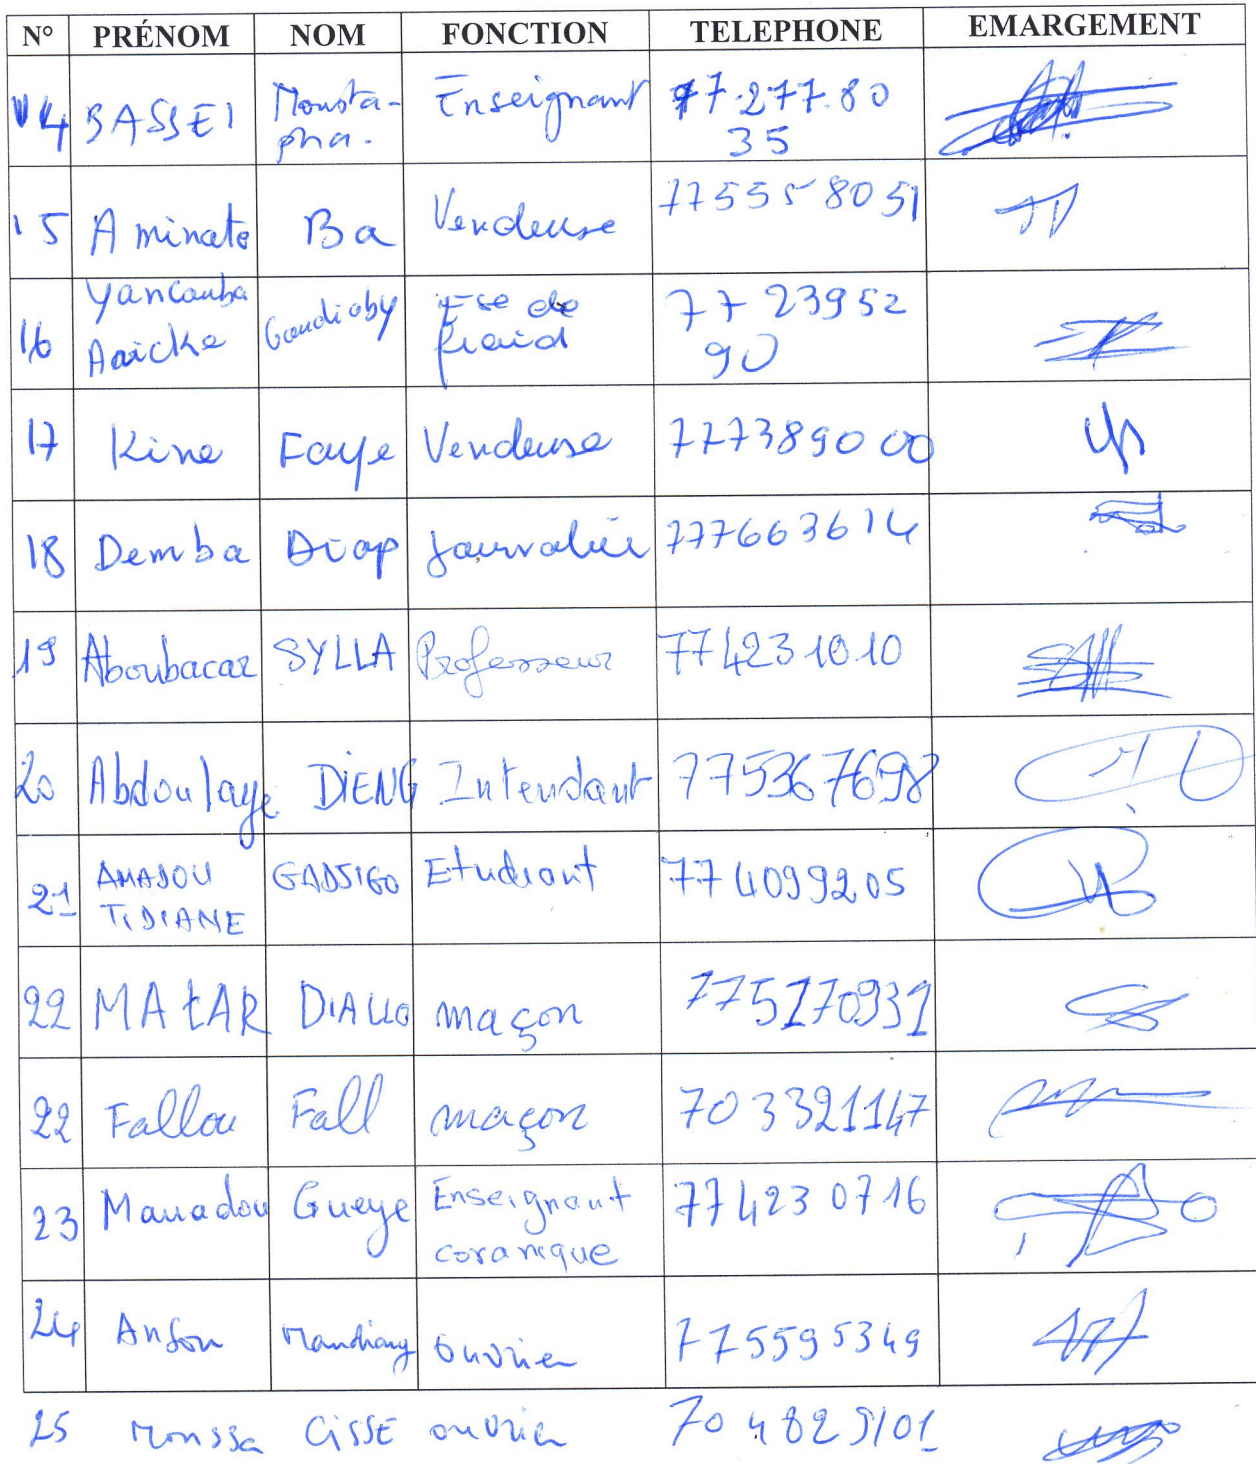 N° PRÉNOM NOM FONCTION TELEPHONE EMARGEMENT
14 BASSEI Mousta-pha. Enseignant 77.277.80 35
15 Aminata Ba Vendeuse 775558051
16 Yancouba Gaudiaby 77 23952 90
17 Kine Faye Vendeuse 777389000
18 Demba Diop 777663614
19 Aboubacar SYLLA Professeur 774231010
20 Abdoulaye DIENG Intendant 775367698
21 AMADOU TIDIANE Etudiant 774099205
22 MATAR DIALLO maçon 775170931
22 Fallou Fall maçon 703321147
23 Mamadou Gueye Enseignant coranique 774230716
24 ouvrier 775595349
25 Moussa CISSE ouvrier 704829101